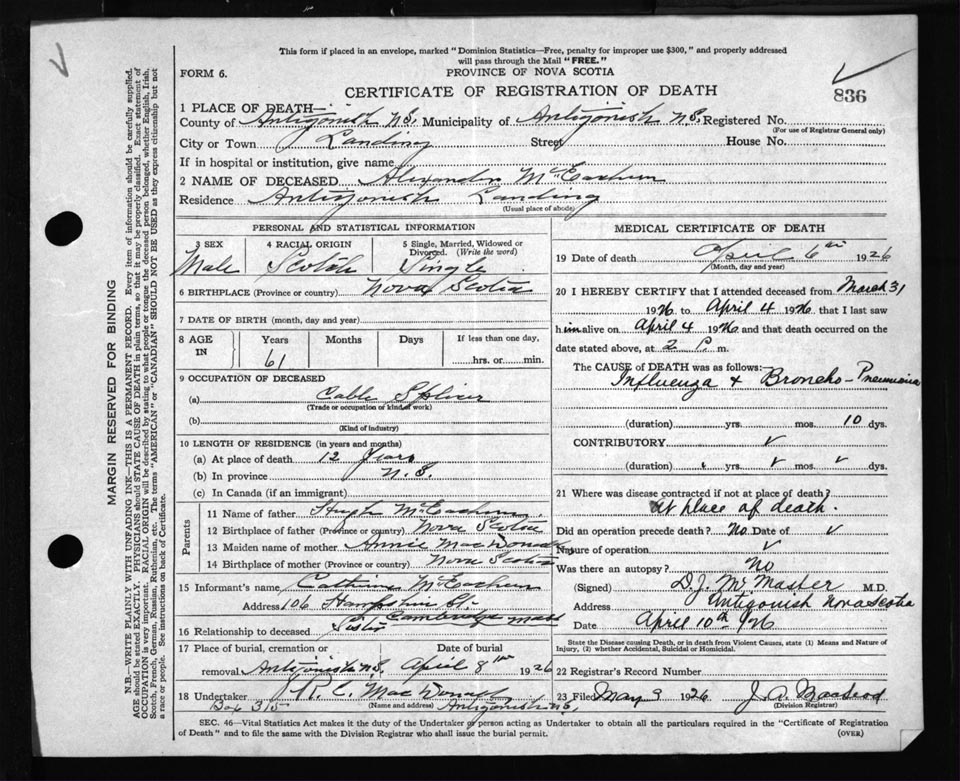 This form if placed in an envelope, marked "Dominion Statistics—Free, penalty for improper use $300," and properly addressed
will pass through the Mail "FREE."
FORM 6.
PROVINCE OF NOVA SCOTIA
CERTIFICATE OF REGISTRATION OF DEATH
836
1 PLACE OF DEATH—
County of Antigonish N.S. Municipality of Antigonish N.S. Registered No.
(For use of Registrar General only)
City or Town Landing Street House No.
If in hospital or institution, give name
2 NAME OF DECEASED Alexander McEachern
Residence Antigonish Landing
(Usual place of abode)
PERSONAL AND STATISTICAL INFORMATION
3 SEX
4 RACIAL ORIGIN
5 Single, Married, Widowed or
Divorced. (Write the word)
Male Scotch Single
6 BIRTHPLACE (Province or country) Nova Scotia
7 DATE OF BIRTH (month, day and year)
8 AGE
IN
Years
Months
Days
If less than one day,
61
hrs. or min.
9 OCCUPATION OF DECEASED
(a) Cable Splicer
(Trade or occupation or kind of work)
(b)
(Kind of industry)
10 LENGTH OF RESIDENCE (in years and months)
(a) At place of death 12 years
(b) In province N.S.
(c) In Canada (if an immigrant)
Parents
11 Name of father Hugh McEachern
12 Birthplace of father (Province or country) Nova Scotia
13 Maiden name of mother Annie MacDonald
14 Birthplace of mother (Province or country) Nova Scotia
15 Informant's name Catherine McEachern
Address 106 St.
Cambridge Mass
16 Relationship to deceased Sister
17 Place of burial, cremation or
Date of burial
removal Antigonish N.S. April 8th 1926
18 Undertaker MacDonald
(Name and address)
Box 315 Antigonish N.S.
MEDICAL CERTIFICATE OF DEATH
19 Date of death April 6th 1926
(Month, day and year)
20 I HEREBY CERTIFY that I attended deceased from March 31
1926 to April 4 1926 that I last saw
him alive on April 4 1926 and that death occurred on the
date stated above, at 2 P. m.
The CAUSE of DEATH was as follows:—
Influenza & Broncho-Pneumonia
(duration) yrs. mos. 10 dys.
CONTRIBUTORY ✓
(duration) yrs. ✓ mos. ✓ dys.
21 Where was disease contracted if not at place of death?
At place of death.
Did an operation precede death? no Date of ✓
Nature of operation ✓
Was there an autopsy? No
(Signed) D.J. McMaster M.D.
Address Antigonish Nova Scotia
Date April 10th 1926
State the Disease causing Death, or in death from Violent Causes, state (1) Means and Nature of
Injury, (2) whether Accidental, Suicidal or Homicidal.
22 Registrar's Record Number
23 Filed May 3 1926 J. A. MacLeod
(Division Registrar)
SEC. 46—Vital Statistics Act makes it the duty of the Undertaker or person acting as Undertaker to obtain all the particulars required in the "Certificate of Registration
of Death" and to file the same with the Division Registrar who shall issue the burial permit.
(OVER)
MARGIN RESERVED FOR BINDING
N.B.—WRITE PLAINLY WITH UNFADING INK—THIS IS A PERMANENT RECORD. Every item of information should be carefully supplied.
AGE should be stated EXACTLY. PHYSICIANS should STATE CAUSE OF DEATH in plain terms, so that it may be properly classified. Exact statement of
OCCUPATION is very important. RACIAL ORIGIN will be described by stating to what people or tongue the deceased person belonged, whether English, Irish,
Scotch, French, German, Russian, Ruthenian, etc. The terms "AMERICAN" or "CANADIAN" SHOULD NOT BE USED as they express citizenship but not
a race or people. See instructions on back of Certificate.